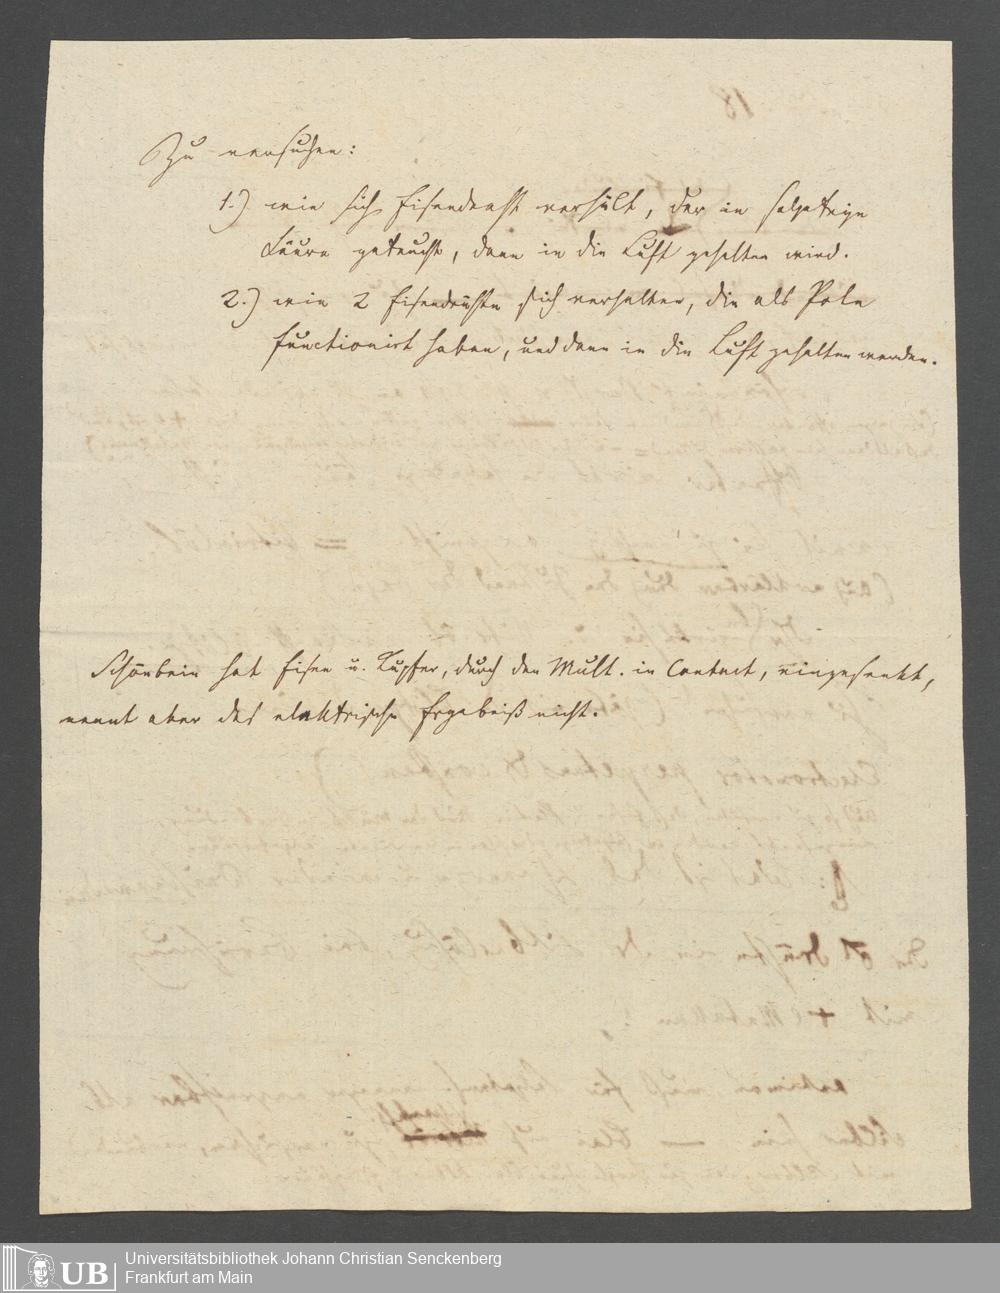 Zu versuchen:
1.) wie sich Eisendraht verhält, der in salpetrige
Säure getaucht, dann in die Luft gehalten wird.
2.) wie 2 Eisendrähte sich verhalten, die als Pole
functionirt haben, und dann in die Luft gehalten werden.
Schönbein hat Eisen u. Kupfer, durch den Mult. in Contact, eingesenkt,
nennt aber das elektrische Ergebniß nicht.
UB
Universitätsbibliothek Johann Christian Senckenberg
Frankfurt am Main